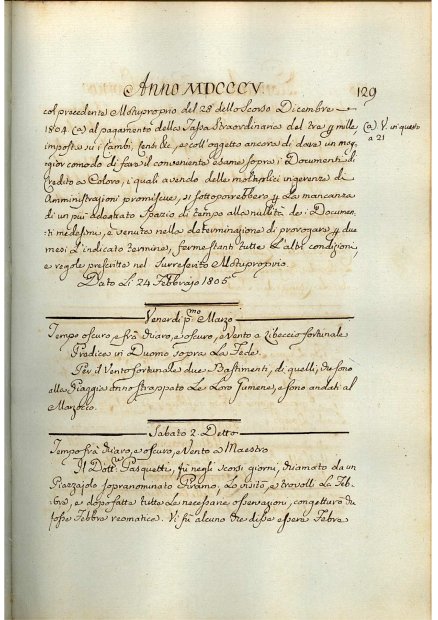 Anno MDCCCV
129
col precedente Motuproprio del 28 dello Scorso Dicembre
1804 (a) al pagamento della Tassa Straordinaria del tre p mille
imposta su i Cambi, Censi &c, e coll'oggetto ancora di dare un mag,
gior comodo di fare il conveniente esame sopra i Documenti di
Credito a Coloro, i quali avendo delle moltiplici ingerenze di
Amministrazioni promiscue, si sottoporrebbero p La mancanza
di un più adeguato Spazio di tempo alla nullità de i Documen,
ti medesimi, è venuta nella determinazione di prorogare p due
mesi L'indicato termine, ferme stanti tutte L'altre condizioni,
e regole prescritte nel Surreferito Motuproprio.
Dato Li 24 Febbrajo 1805
(a) V. in questo
a 21
Venerdi pmo Marzo
Tempo oscuro, e frà chiaro, e oscuro, e Vento a Libeccio fortunale
Predica in Duomo sopra La Fede.
Per il Vento fortunale due Bastimenti, di quelli, che sono
alla Piaggia anno strappato Le Loro Gumene, e sono andati al
Marzocco.
Sabato 2. Detto
Tempo frà chiaro, e oscuro, e Vento a Maestro
Il Dottre Pasquetti, fù negli scorsi giorni, chiamato da un
Piazzajolo sopranominato Piramo, Lo visitò, e trovolli La Feb-
bre, e dopo fatte tutte Le necessarie osservazioni, congetturò che
fosse Febbre reomatica. Vi fù alcuno che disse essere Febre